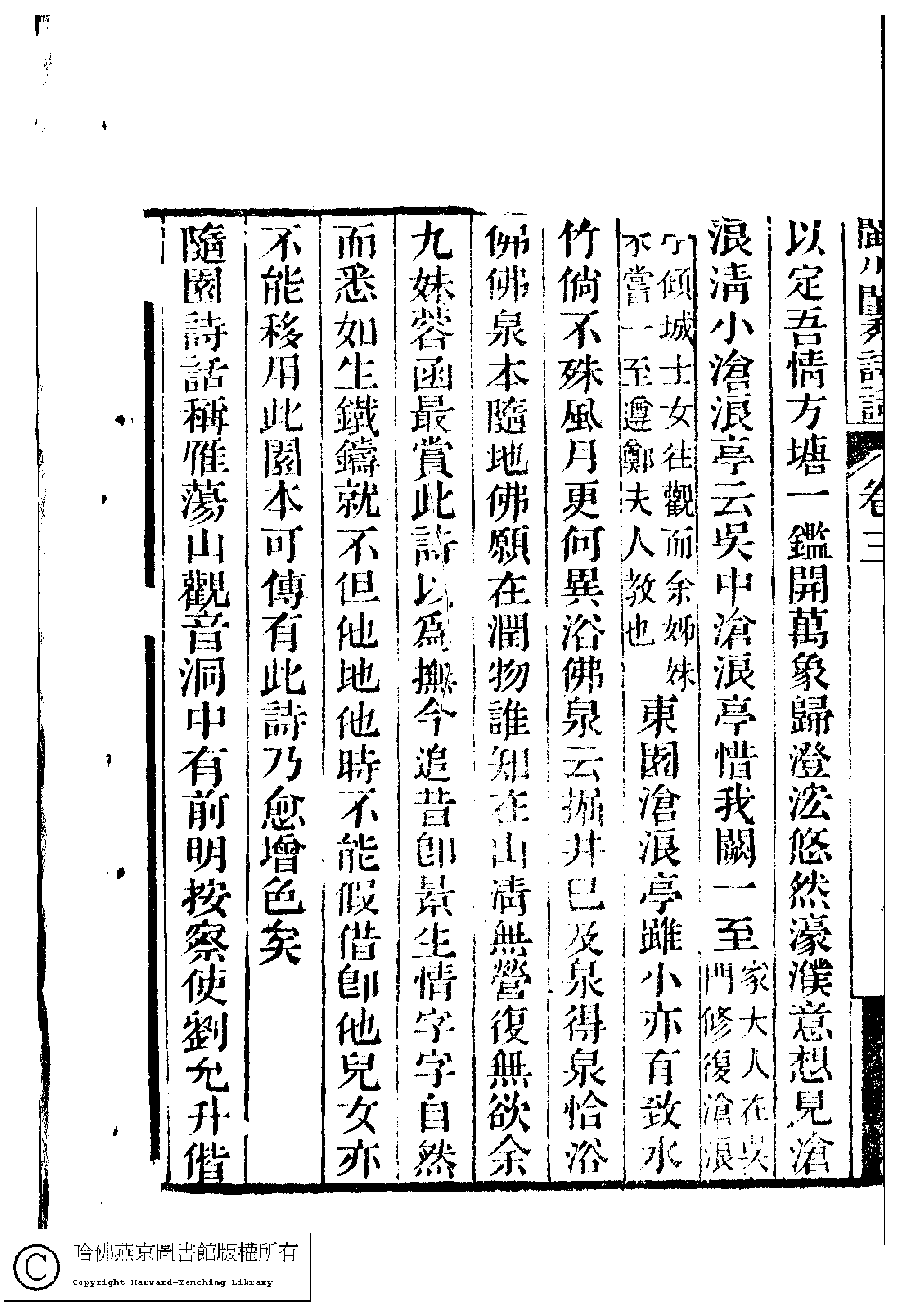 閩川閨秀詩話 卷三
以定吾情方塘一鑑開萬象歸澄泓悠然濠濮意想見滄
浪清小滄浪亭云吳中滄浪亭惜我闕一至家大人在吳門修復滄浪
亭傾城士女往觀而余姊妹不嘗一至遵鄭夫人教也東園滄浪亭雖小亦有致水
竹倘不殊風月更何異浴佛泉云掘井已及泉得泉恰浴
佛佛泉本隨地佛願在潤物誰知在山清無營復無欲余
九妹蓉函最賞此詩以為撫今追昔卽景生情字字自然
而悉如生鐵鑄就不但他地他時不能假借卽他兒女亦
不能移用此園本可傳有此詩乃愈增色矣
隨園詩話稱雁蕩山觀音洞中有前明按察使劉允升偕
哈佛燕京圖書館版權所有
Copyright Harvard-Yenching Library